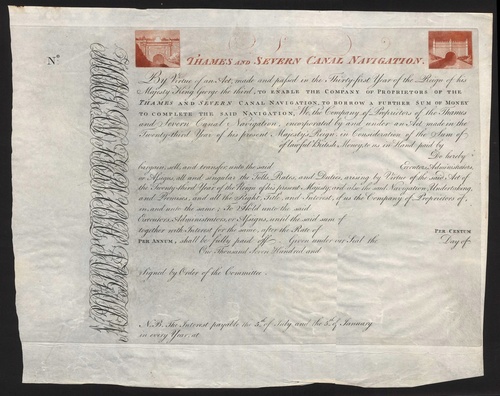 Nº
THAMES AND SEVERN CANAL NAVIGATION.
By Virtue of an Act, made and passed in the Thirty first Year of the Reign of his
Majesty King George the third, TO ENABLE THE COMPANY OF PROPRIETORS OF THE
THAMES AND SEVERN CANAL NAVIGATION, TO BORROW A FURTHER SUM OF MONEY
TO COMPLETE THE SAID NAVIGATION, We, the Company of Proprietors of the Thames
and Severn Canal Navigation, incorporated by and under an Act, made in the
Twenty-third Year of his present Majesty's Reign, in Consideration of the Sum of
of lawful British Money, to us in Hand paid by
Do hereby
bargain, sell, and transfer, unto the said Executors, Administrators,
or Assigns, all and singular the Tolls, Rates, and Duties, arising by Virtue of the said Act of
the Twenty-third Year of the Reign of his present Majesty; and also the said Navigation, Undertaking,
and Premises, and all the Right, Title, and Interest, of us the Company of Proprietors of,
in, and unto the same; To Hold unto the said
Executors, Administrators, or Assigns, until the said sum of
together with Interest for the same, after the Rate of PER CENTUM
PER ANNUM, shall be fully paid off. Given under our Seal the Day of
One Thousand Seven Hundred and
Signed by Order of the Committee.
N.B. The Interest payable the 5th. of July, and the 5th. of January
in every Year, at